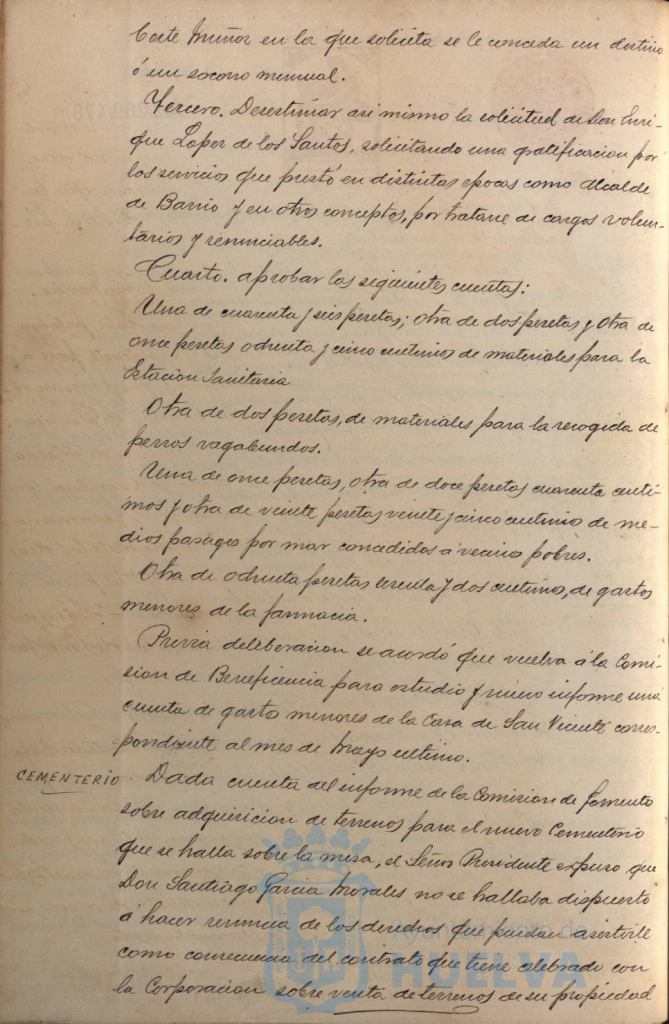 Corte Muñoz en la que solicita se le conceda un destino
ó un socorro mensual.
Tercero. Desestimar asi mismo la solicitud de Don Enri-
que Lopez de los Santos, solicitando una gratificacion por
los servicios que prestó en distintas epocas como Alcalde
de Barrio y en otros conceptos, por tratarse de cargos volun-
tarios y renunciables.
Cuarto. aprobar las siguientes cuentas:
Una de cuarenta y seis pesetas; otra de dos pesetas y otra de
once pesetas ochenta y cinco centimos de materiales para la
Estacion Sanitaria
Otra de dos pesetas, de materiales para la recogida de
perros vagabundos.
Una de once pesetas, otra de doce pesetas cuarenta centi-
mos y otra de veinte pesetas veinte y cinco centimos de me-
dios pasages por mar concedidos á vecinos pobres.
Otra de ochenta pesetas y dos centimos, de gastos
menores de la farmacia.
Previa deliberacion se acordó que vuelva á la Comi-
sion de Beneficencia para estudio y nuevo informe una
cuenta de gastos menores de la Casa de San Vicente corres-
pondiente al mes de Mayo ultimo.
CEMENTERIO. Dada cuenta del informe de la Comision de Fomento
sobre adquisicion de terrenos para el nuevo Cementerio
que se halla sobre la mesa, el Señor Presidente expuso que
Don Santiago Garcia Morales no se hallaba dispuesto
á hacer renuncia de los derechos que puedan asistirle
como consecuencia del contrato que tiene celebrado con
la Corporacion sobre venta de terrenos de su propiedad
Ayuntamiento de
HUELVA